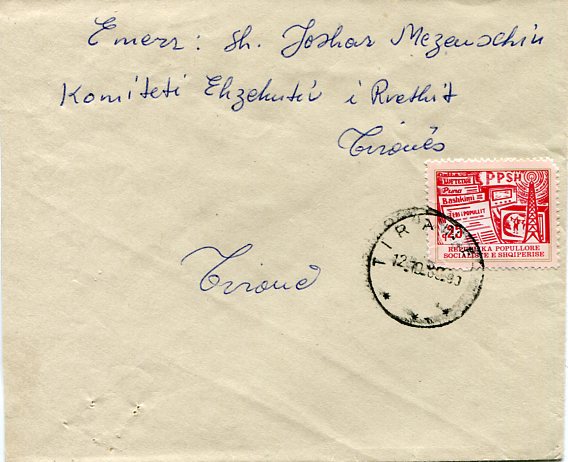 Emerr: sh. Joshar Mezenxhiu
Komiteti Ekzekutiv i Rrethit
Tiranës
PPSH
Puna
Bashkimi
ZËRI I POPULLIT
REPUBLIKA POPULLORE
SOCIALISTE E SHQIPERISE
TIRANA
Tiranë